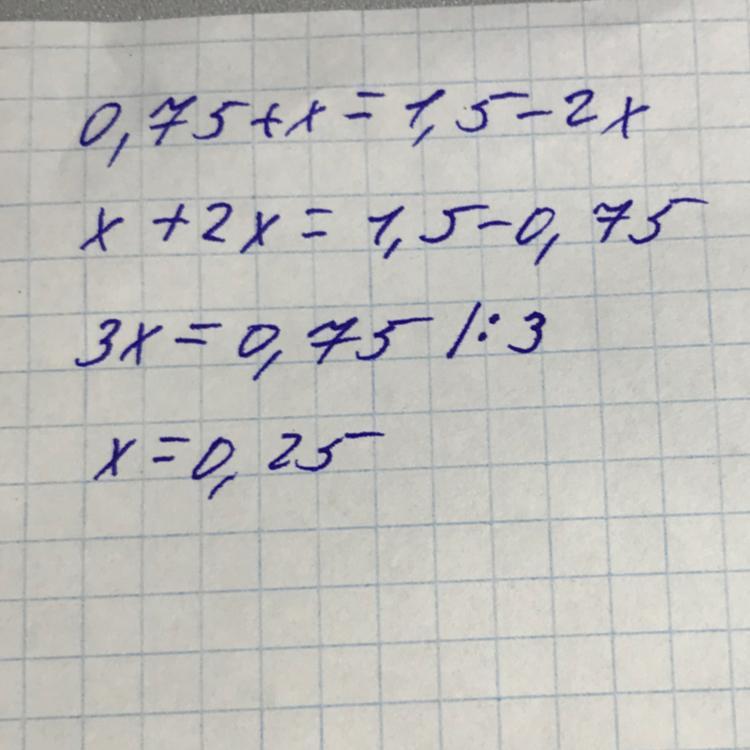 0,75+x=1,5-2x
x+2x=1,5-0,75
3x=0,75 |:3
x=0,25